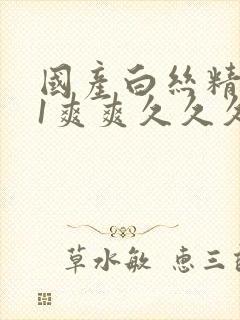 國產白絲精
1爽爽久久久
草水敏 惠三郎